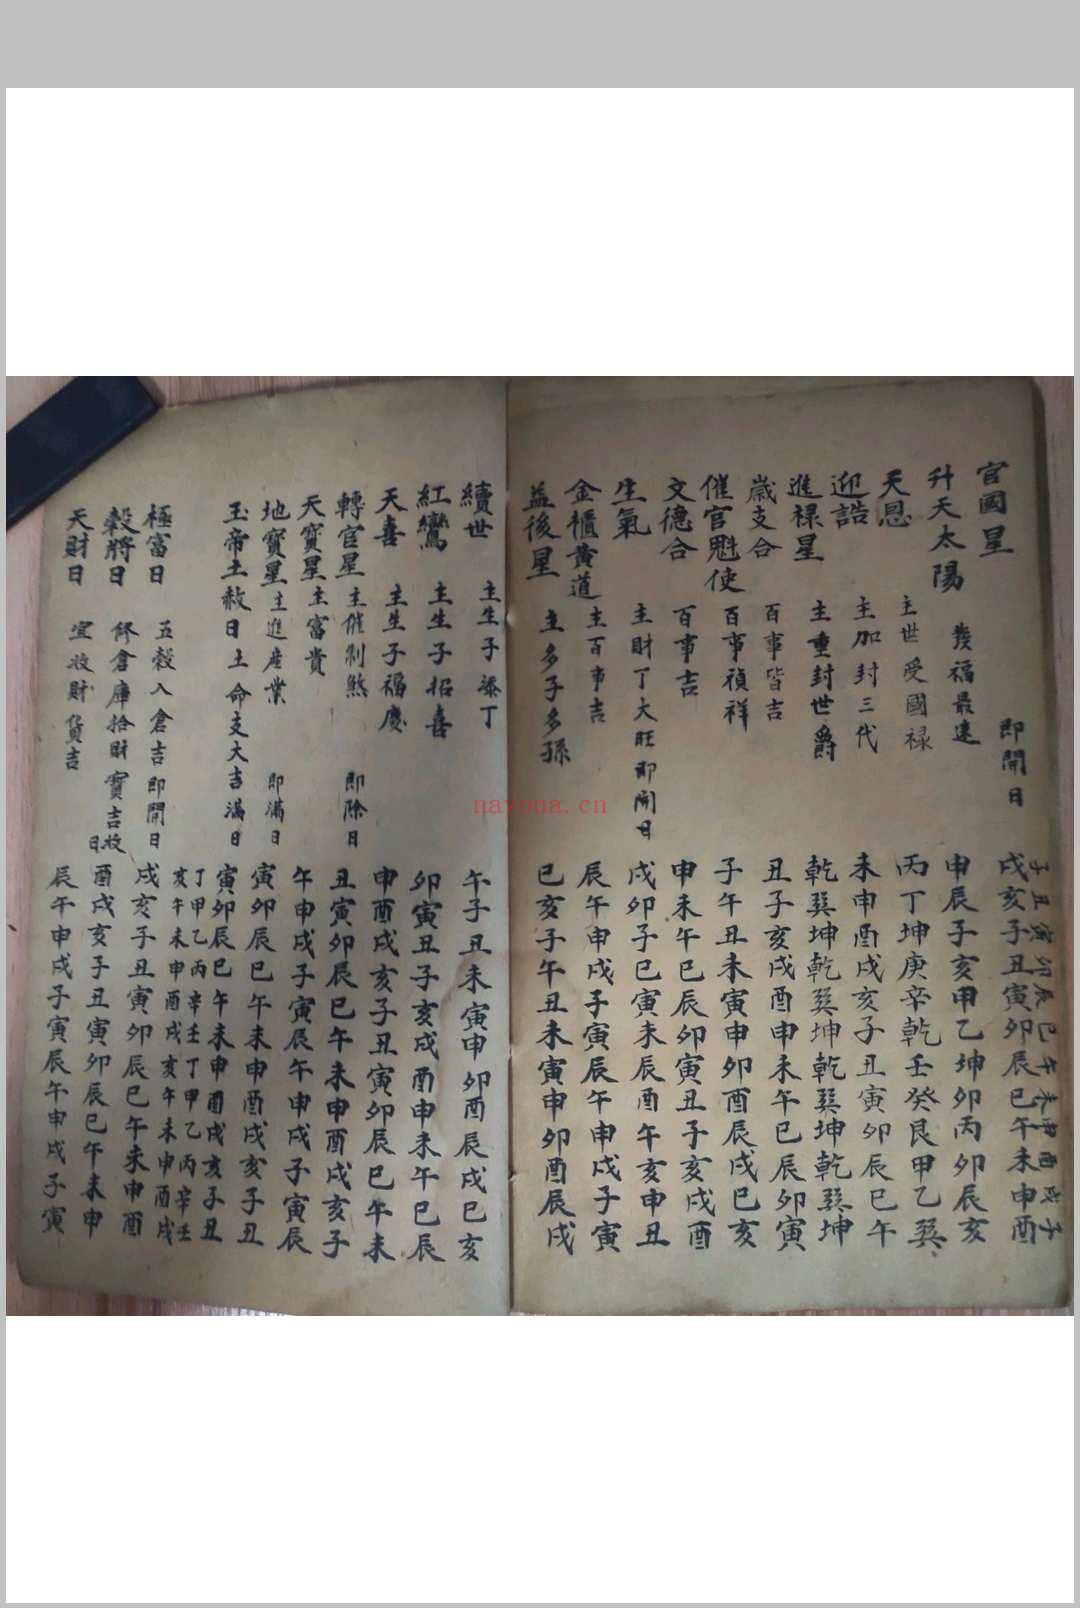 官國星 即開日 戌亥子丑寅卯辰巳午未申酉
升天太陽 發福最速 申辰子亥甲乙坤卯丙卯辰亥
天恩 主世受國祿 丙丁坤庚辛乾壬癸艮甲乙巽
迎誥 主加封三代 未申酉戌亥子丑寅卯辰巳午
進祿星 主重封世爵 乾巽坤乾巽坤乾巽坤乾巽坤
歲支合 百事皆吉 丑子亥戌酉申未午巳辰卯寅
催官魁使 百事禎祥 子午丑未寅申卯酉辰戌巳亥
文德合 百事吉 申未午巳辰卯寅丑子亥戌酉
生氣 主財丁大旺即開日 戌卯子巳寅未辰酉午亥申丑
金櫃黃道 主百事吉 辰午申戌子寅辰午申戌子寅
益後星 主多子多孫 巳亥子午丑未寅申卯酉辰戌
續世 主生子添丁 午子丑未寅申卯酉辰戌巳亥
紅鸞 主生子招喜 卯寅丑子亥戌酉申未午巳辰
天喜 主生子福慶 申酉戌亥子丑寅卯辰巳午未
轉官星 主催制煞 即除日 丑寅卯辰巳午未申酉戌亥子
天寶星 主富貴 午申戌子寅辰午申戌子寅辰
地寶星 主進産業 即滿日 寅卯辰巳午未申酉戌亥子丑
玉帝土赦日 土命支大吉滿日 寅卯辰巳午未申酉戌亥子丑
丁甲乙丙辛壬丁甲乙丙辛壬
亥午未申酉戌亥午未申酉戌
極富日 五穀入倉吉即開日 戌亥子丑寅卯辰巳午未申酉
穀將日 修倉庫拾財寶吉收日 酉戌亥子丑寅卯辰巳午未申
天財日 宜收財貨吉 辰午申戌子寅辰午申戌子寅
nayona.cn